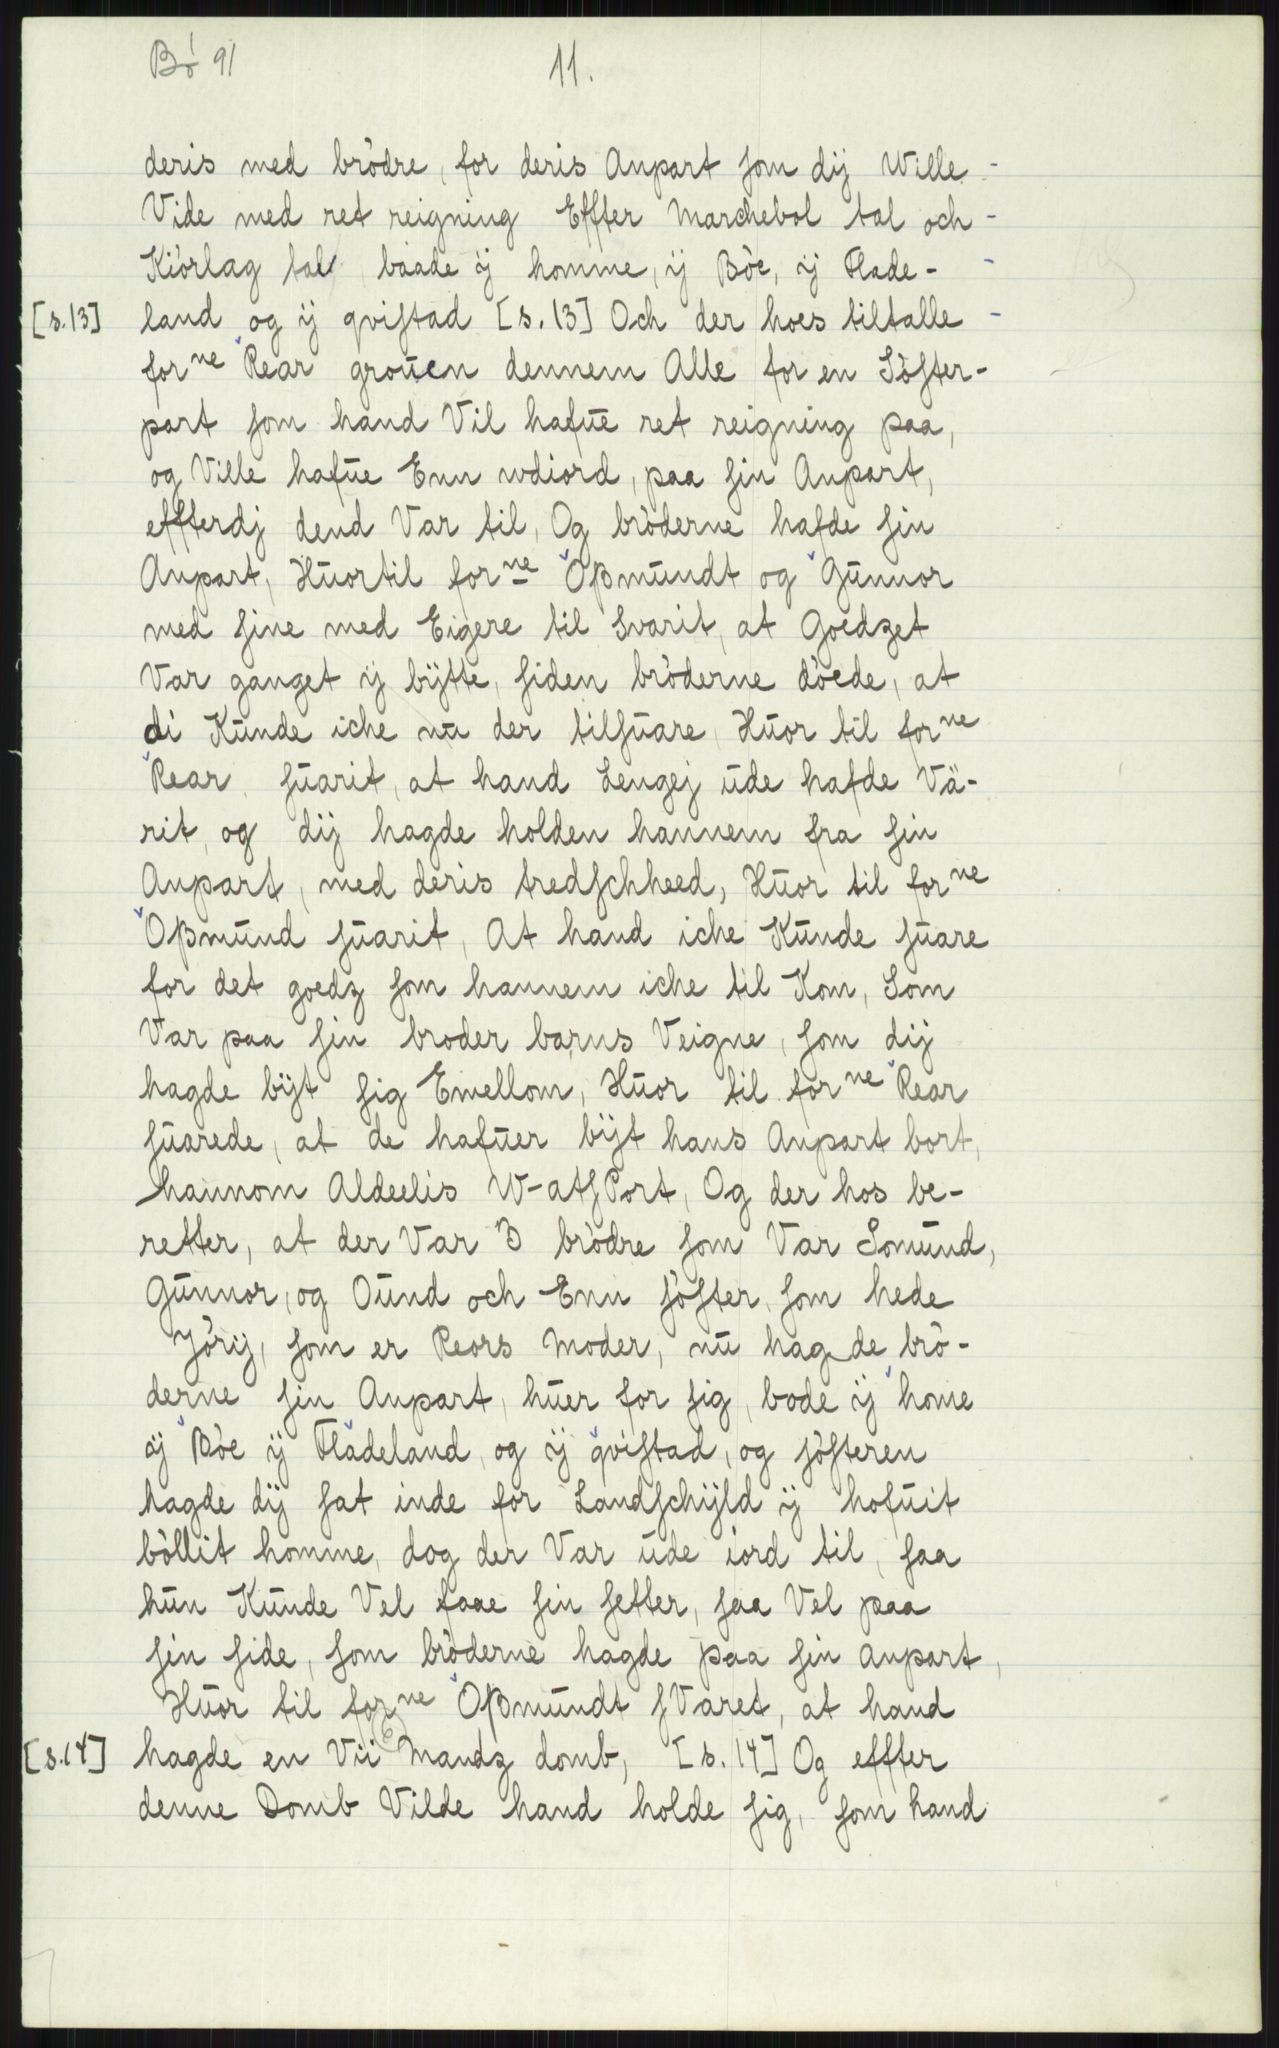 Bö 91
11.
deris med brödre, for deris Anpart som dij Wille -
Vide med ret reigning Effter Marchebol tal och -
Kiörlag tal, baade ij homme, ij Böe, ij Flade- -
[s.13] land og ij qvistad [s. 13] Och der hoes tiltalle -
forne Rear grouen dennem Alle for en Söster-
part som hand Vil hafue ret reigning paa,
og Ville hafue Enn wdiord, paa sin Anpart,
effterdj dend Var til, Og bröderne hafde sin
Anpart, Huortil forne Oßmundt og Gunnor
med sine med Eigere til Svarit, at Goedzet
Var ganget ij bytte, siden bröderne döede, at
di Kunde iche nu der tilsuare, Huor til forne
Rear suarit, at hand Lengej ude hafde Vä-
rit, og dij hagde holden hannem fra sin
Anpart, med deris tredschheed, Huor til forne
Oßmund suarit, At hand iche Kunde suare
for det goedz som hannem iche til Kom, Som
Var paa sin broder barns Veigne, som dij
hagde bijt sig Emellom, Huor til forne Rear
suarede, at de hafuer bijt hans Anpart bort,
hannom Aldeelis W-atsPort, Og der hos be-
retter, at der Var 3 brödre som Var Somund,
Gunnor, og Ound och Enn söster, som hede
Jörij, som er Reors Moder, nu hagde brö-
derne sin Anpart, huer for sig, bode ij home
ij Böe ij Fladeland, og ij qvistad, og sösteren
hagde dij sat inde for Landschijld ij hofuit
böllit homme, dog der Var ude iord til, saa
hun Kunde Vel faae sin setter, saa Vel paa
sin side, som bröderne hagde paa sin anpart,
Huor til forne Oßmundt sVaret, at hand
[s.14] hagde en Vii Mandz domb, [s. 14] Og effter
denne Domb Vilde hand holde sig, som hand